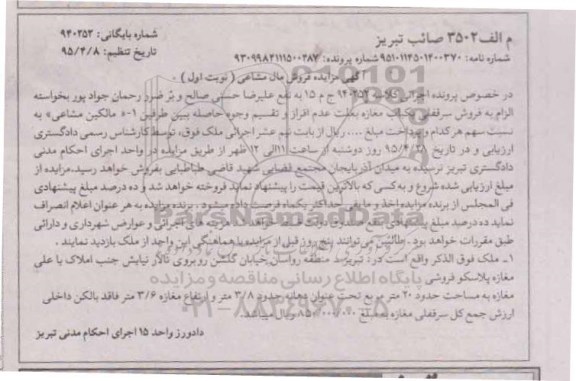 م الف ۳۵۰۲ صائب تبریز
شماره بایگانی: ۹۴۰۲۵۲
شماره نامه: ۹۵۱۰۱۱۴۵۰۱۴۰۰۳۷۰ شماره پرونده: ۹۳۰۹۹۸۴۱۱۱۵۰۰۲۸۷ تاریخ تنظیم: ۹۵/۴/۸
آگهی مزایده فروش مال مشاعی ( نوبت اول )
در خصوص پرونده اجرائی کلاسه ۹۴۰۲۵۲ ج م ۱۵ به نفع علیرضا حسنی صالح و بر ضرر رحمان جواد پور بخواسته
الزام به فروش سرقفلی یکباب مغازه بعلت عدم افراز و تقسیم وجوه حاصله بین طرفین ۱-« مالکین مشاعی» به
نسبت سهم هر کدام و پرداخت مبلغ .... ریال از بابت نیم عشر اجرائی ملک فوق، توسط کارشناس رسمی دادگستری
ارزیابی و در تاریخ ۹۵/۴/۲۸ روز دوشنبه از ساعت ۱۱الی ۱۲ ظهر از طریق مزایده در واحد اجرای احکام مدنی
دادگستری تبریز نرسیده به میدان آذربایجان مجتمع قضایی شهید قاضی طباطبایی بفروش خواهد رسید.مزایده از
مبلغ ارزیابی شده شروع و به کسی که بالاترین قیمت را پیشنهاد نماید فروخته خواهد شد و ده درصد مبلغ پیشنهادی
فی المجلس از برنده مزایده اخذ و مابقی حداکثر یکماه فرصت داده میشود . برنده مزایده به هر عنوان اعلام انصراف
نماید ده درصد مبلغ پیشنهادی بنفع صندوق دولت ضبط خواهد شد هزینه های اجرائی و عوارض شهرداری و دارائی
طبق مقررات خواهد بود . طالبین می‌توانند پنج روز قبل از مزایده با هماهنگی این واحد از ملک بازدید نمایند .
۱- ملک فوق الذکر واقع است در: تبریز منطقه رواسان خیابان گلشن روبروی تالار نیایش جنب املاک یا علی
مغازه پلاسکو فروشی
مغازه به مساحت حدود ۲۰ متر مربع تحت عنوان دهانه حدود ۳/۸ متر و ارتفاع مغازه ۳/۶ متر فاقد بالکن داخلی
ارزش جمع کل سرقفلی مغازه به مبلغ ۸۵۰/۰۰۰/۰۰۰ ریال میباشد.
دادورز واحد ۱۵ اجرای احکام مدنی تبریز
ParsNamadData
پایگاه اطلاع رسانی مناقصه و مزایده